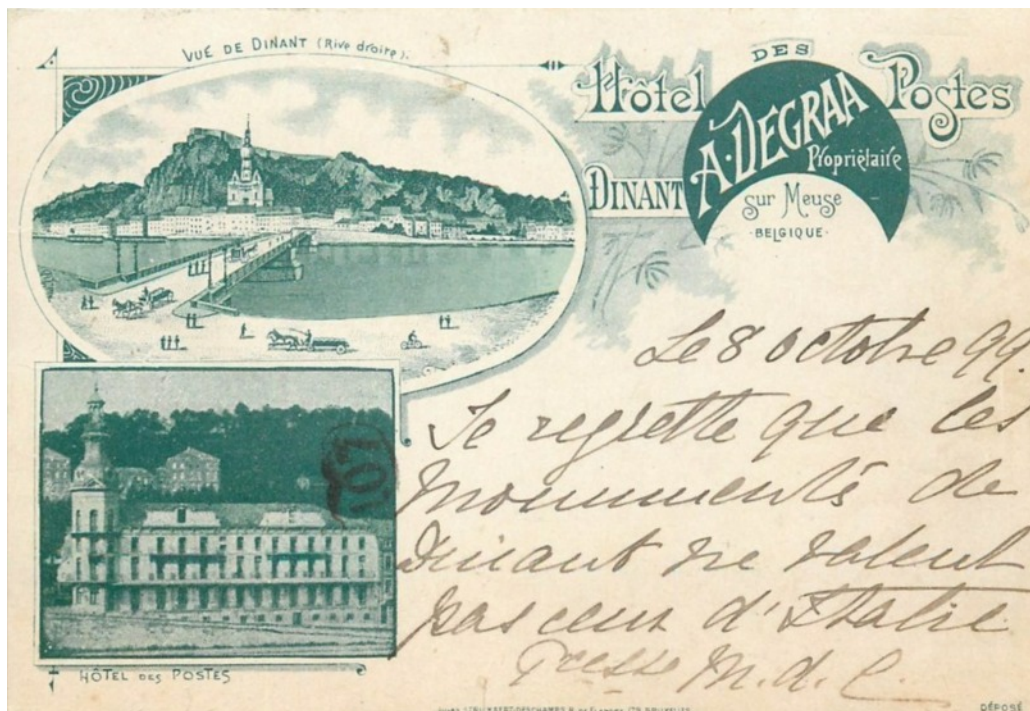 VUE DE DINANT (Rive droite).
Hôtel DES Postes
A. DEGRAA
Propriétaire
DINANT
sur Meuse
BELGIQUE
Le 8 octobre 99.
Je regrette que les
monuments de
Dinant ne valent
pas ceux d'Italie
M. d. C.
107
HÔTEL DES POSTES
DÉPOSÉ